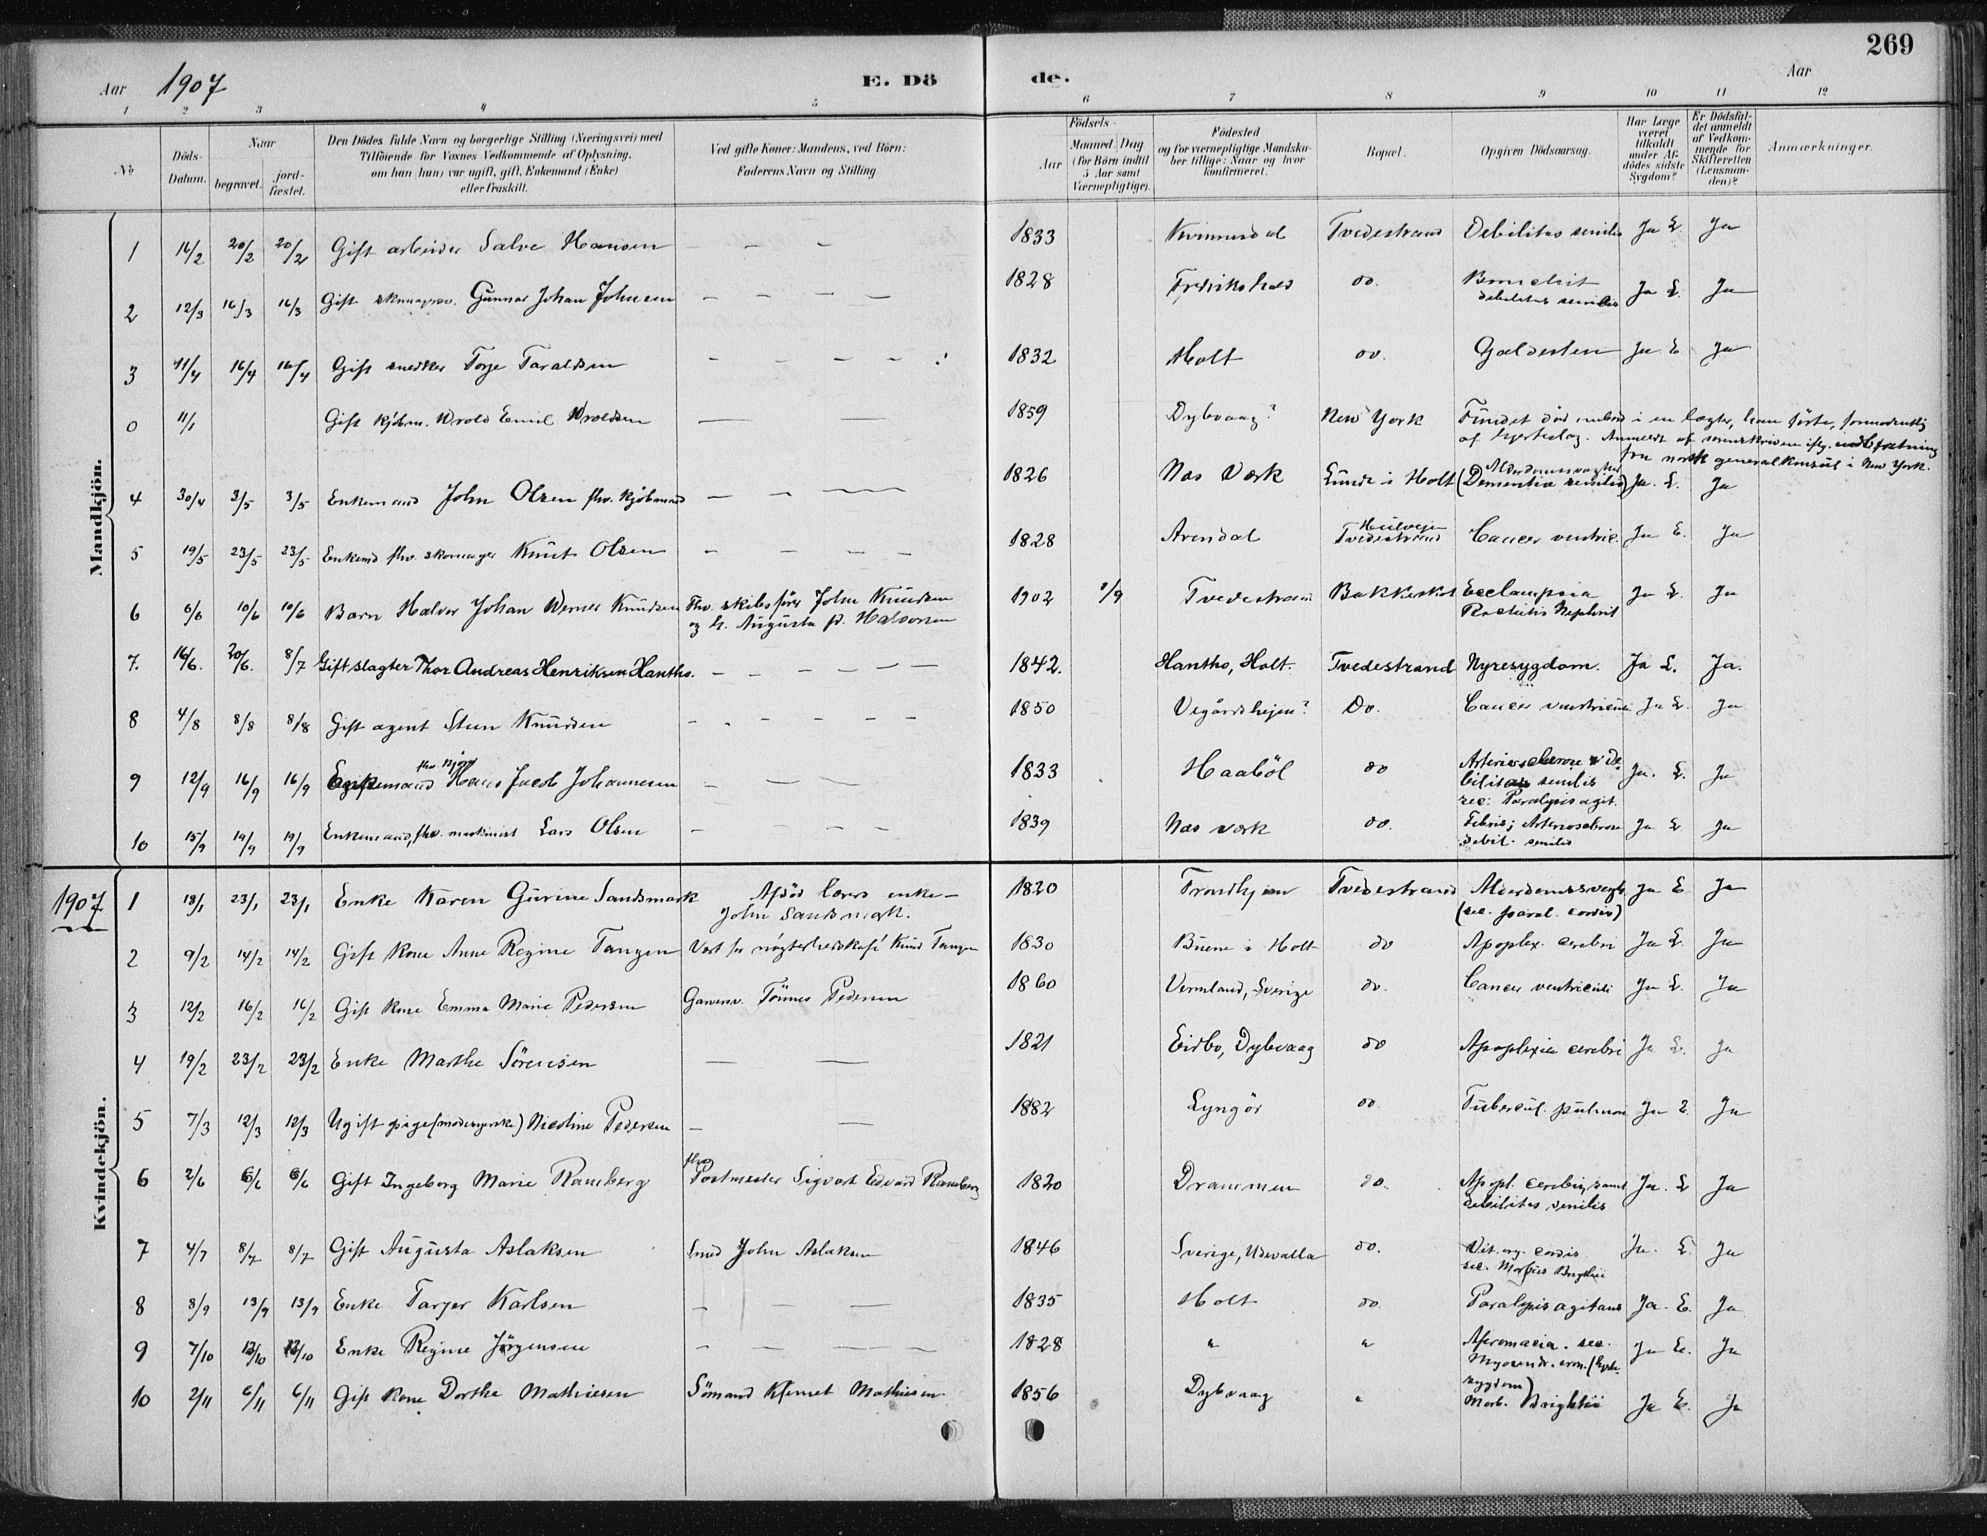 269
Aar 1907 E. Dö de. Aar
1 2 3 4 5 6 7 8 9 10 11 12
No
Döds-Datum.
Naar
begravet.
jord-fæstet.
Den Dödes fulde Navn og borgerlige Stilling (Næringsvei) med
Tilföiende for Voxnes Vedkommende af Oplysning,
om han (hun) var ugift, gift, Enkemand (Enke)
eller fraskilt.
Ved gifte Koner: Mandens, ved Börn:
Faderens Navn og Stilling
Födsels-
Aar
Maaned. Dag
(for Börn indtil
5 Aar samt
Værnepligtige).
Födested
og for værnepligtige Mandska-
ber tillige: Naar og hvor
konfirmeret.
Bopæl.
Opgiven Dödsaarsag.
Har Læge
været
tilkaldt
under Af-
dödes sidste
Sygdom?
Er Dödsfal-
det anmeldt
af Vedkom-
mende for
Skifteretten
(Lensman-
den)?
Anmærkninger.
Mandkjön.
1 16/2 20/2 20/2 Gift arbeider Salve Hansen — — — 1833 Tvedestrand Debilitas senilis Ja L. Ja
2 12/3 16/3 16/3 Gift Gunnar Johan Johnsen — — — — 1828 Fredrikshald do. debilitas senilis Ja L. Ja
3 11/4 16/4 16/4 Gift snedker Torje Taraldsen — — — — 1832 Holt do. Galdesten Ja L Ja
0 11/1 Gift kjøbm. Wrold Emil Wroldsen — — 1859 Dybvaag? New York Fundet död ombord i en lægter, han förte, formodentlig
af hjerteslag. Anmeldt af sorenskriveren iflg. indberetning
fra norsk generalkonsul i New York.
4 30/4 3/5 3/5 Enkemand John Olsen fhv. kjøbmand — — — 1826 Nas Værk Lunde i Holt Alderdomssvaghed
(Dementia senilis) Ja. L. Ja
5 19/5 23/5 23/5 Enkemd fhv. skomager Knut Olsen — — — — 1828 Arendal Tvedestrand Cancer ventric. Ja L. Ja
6 6/6 10/6 10/6 Barn Halvor Johan Werner Knudsen Fhv. skibsfører John Knudsen
og h. Augusta f. Halvorsen 1902 1/9 Tvedestrand Bakkeskot Ecclampsia
Rachitis Nephrit Ja L. Ja
7. 16/6. 20/6. 8/7 Gift slagter Thor Andreas Henriksen Hantho. — — — — — 1842. Hantho, Holt. Tvedestrand Nyresygdom. Ja L. Ja.
8 4/8 8/8 8/8 Gift agent Sten Knudsen — — — — — 1850 Vegårdshejen? Do. Cancer ventriculi Ja L. Ja
9 12/9 16/9 16/9 Enkemand Hans Jacob Johannesen — — — 1833 Haaböl do Arteriosclerose & De
bilitas senilis
sec: Paralysis agit. Ja. L. Ja
10 15/9 19/9 19/9 Enkemand, fhv. maskinist Lars Olsen — — — — 1839 Nas værk do. Febris; Arteriosclerose
debil. senilis Ja L Ja
1907
Kvindekjön.
1 18/1 23/1 23/1 Enke Karen Gurine Sandsmark Afdöd lærers enke —
John Sandsmark. 1820 Trondhjem Tvedestrand Alderdomssvagh.
(sec. paral. cordis) Ja L. Ja
2 9/2 14/2 14/2 Gift kone Anne Regine Tangen Vært for nögterhedskafé Knud Tangen 1830 Buene i Holt do Apoplex. cerebri Ja L. Ja
3 12/2 16/2 16/2 Gift kone Emma Marie Pedersen Garversv. Tönnes Pedersen 1860 Vermland, Sverige do. Cancer ventriculi Ja L. Ja
4 19/2 23/2 23/2 Enke Marthe Sörensen — — 1821 Eidbo, Dybvaag do Apoplexia cerebri Ja L. Ja
5 7/3 12/3 12/3 Ugift pige (modesyerske) Nicoline Pedersen — — 1882 Lyngör do. Tubercul. pulmon Ja L. Ja
6 2/6 6/6 6/6 Gift Ingeborg Marie Ramberg fhv.
Postmester Sigvart Edvard Ramberg 1820 Drammen do. Apopl. cerebri, samt
debilitas senilis Ja. L Ja
7 4/7 8/7 8/7 Gift Augusta Aslaksen Smed John Aslaksen 1846 Sverige, Udevalla do. Vit. org. cordis
sec. Morbus Brightii Ja. L. Ja
8 8/9 13/9 13/9 Enke Tarjer Karlsen — — — 1835 Holt do Paralysis agitans Ja. L. Ja
9 7/10 12/10 12/10 Enke Regine Jörgensen — — — — 1828 " " sec. Ja L. Ja
10 2/11 6/11 6/11 Gift kone Dorthe Mathiesen Sömand Klemet Mathiesen 1856 Dybvaag " Morb. Brightii Ja L. Ja